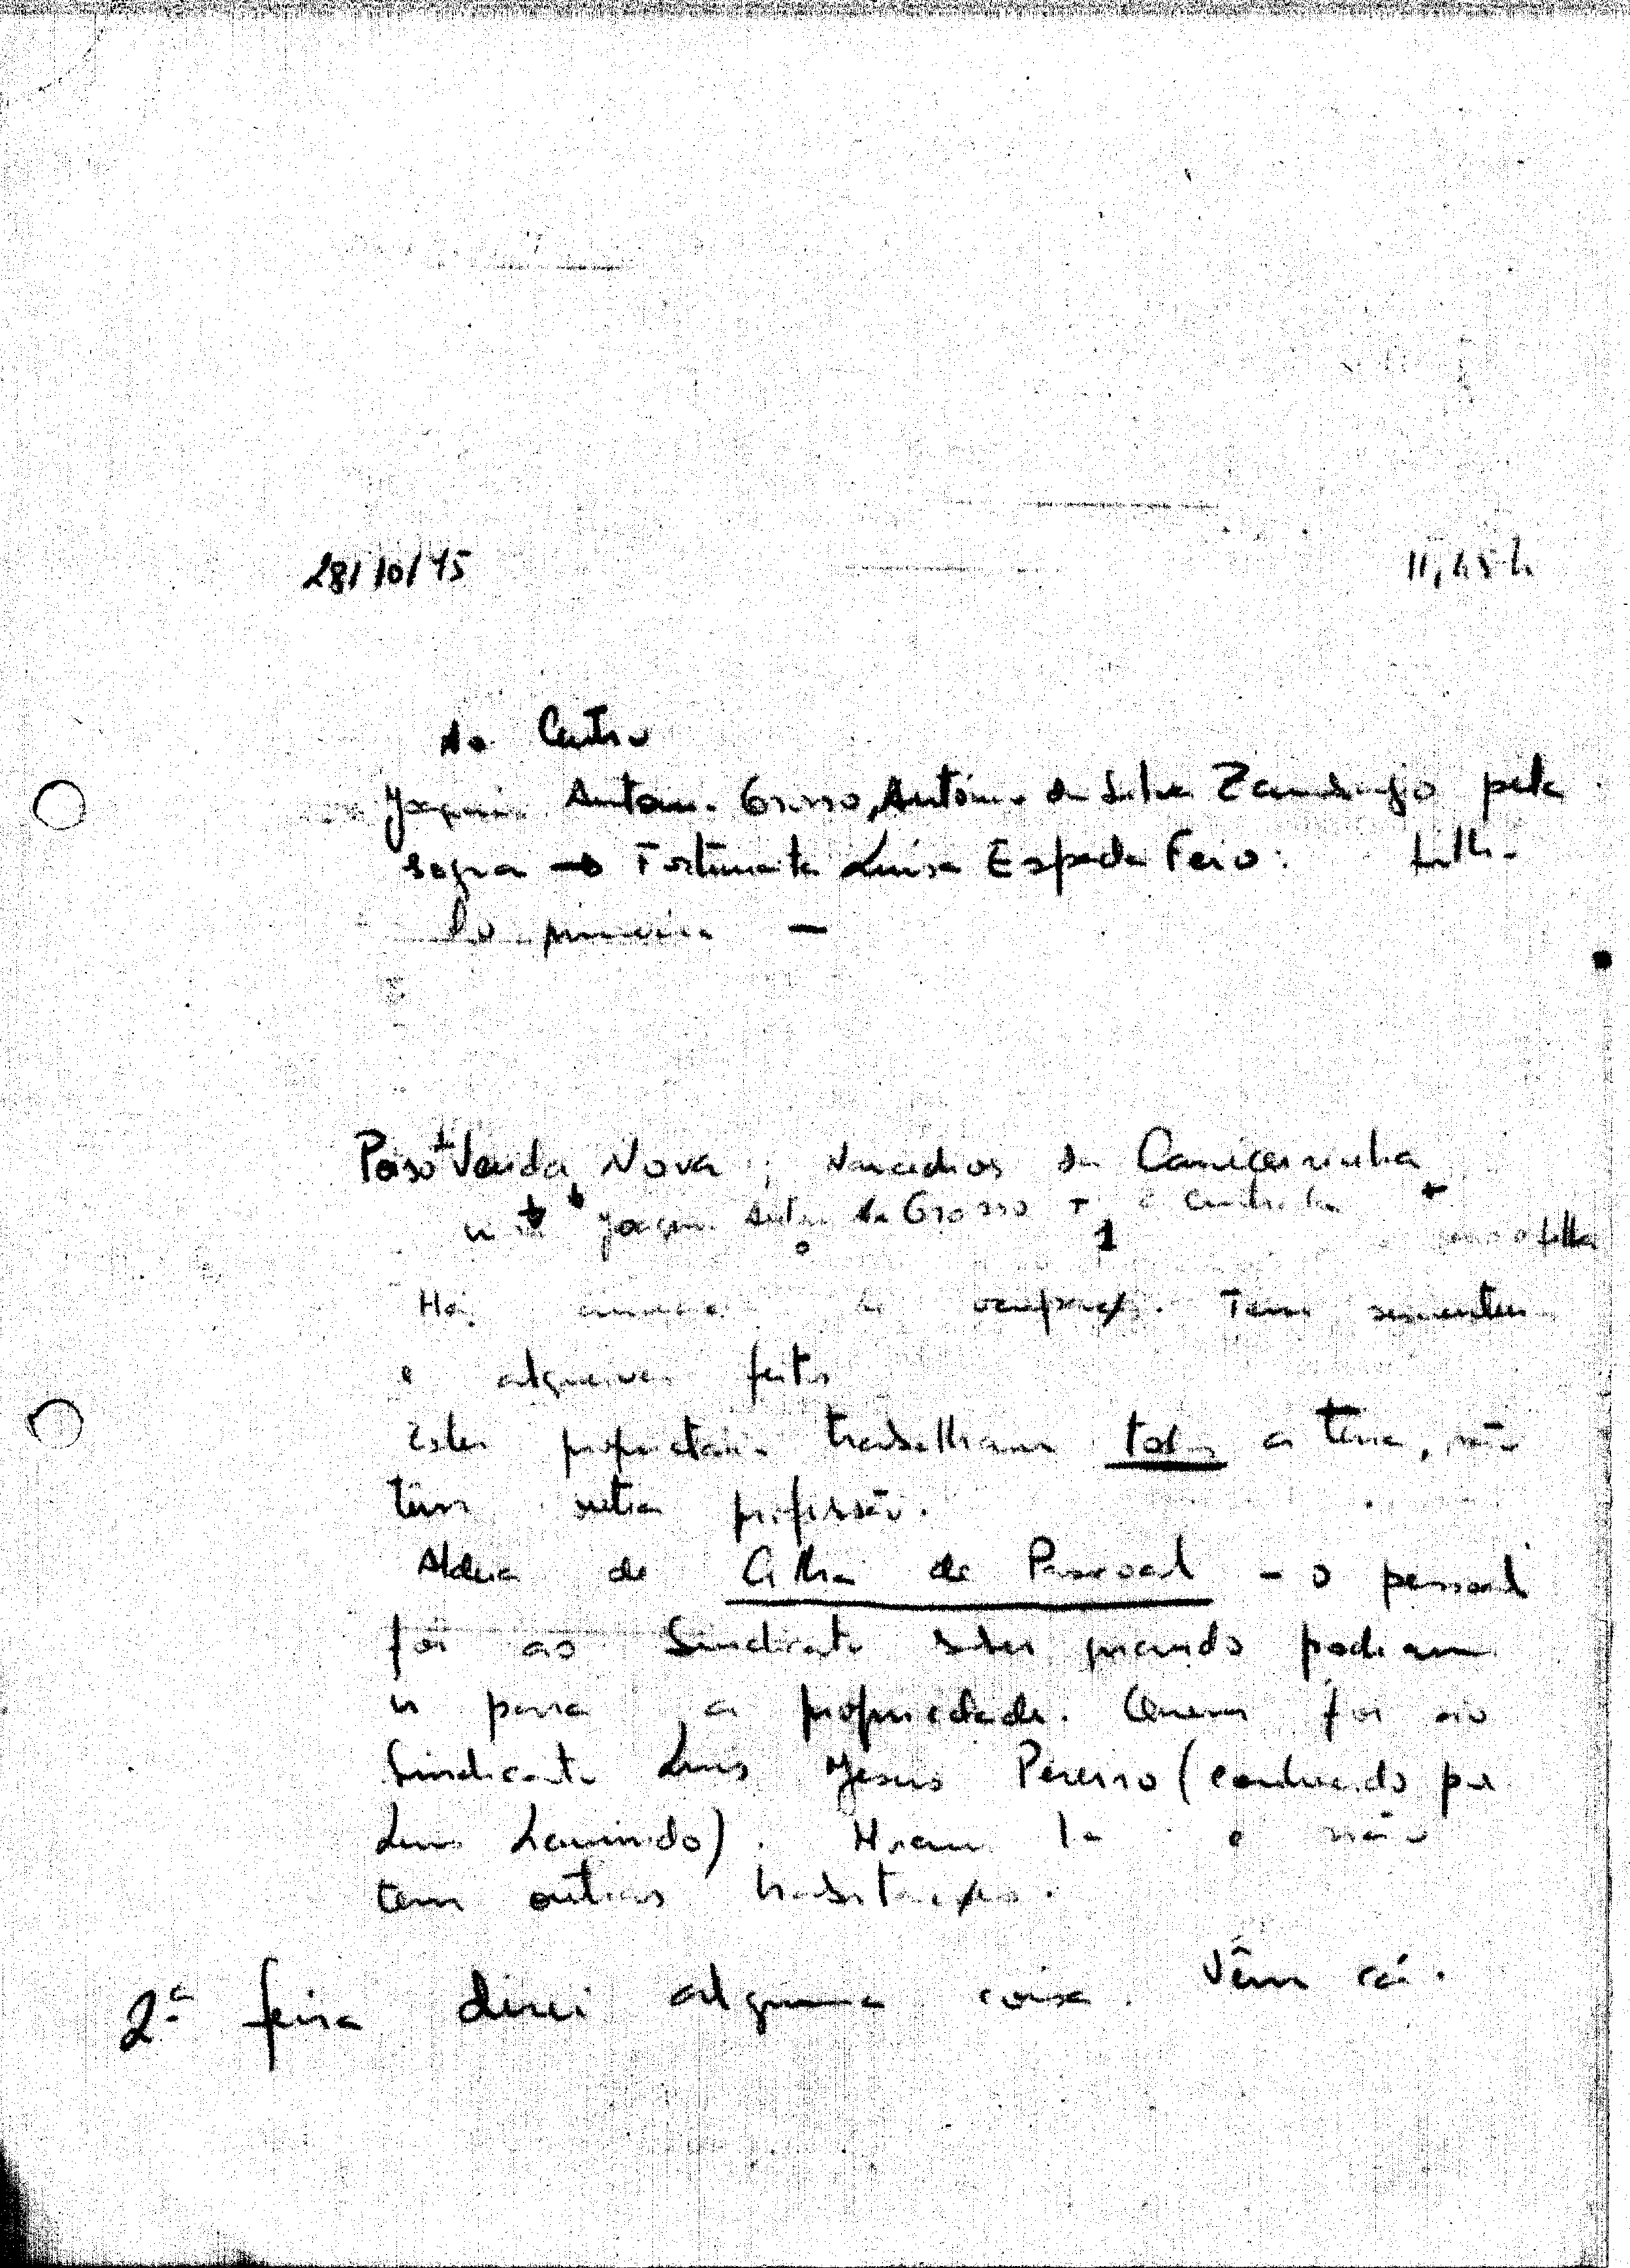 28/10/75 11,45 h
do Centro
Joaquim António Grosso, António da Silva Zambujo pela
sogra → Fortunata Luísa Espada Feio. filho
do primeiro —
Poiso Venda Nova
Joaquim Grosso
filho
Há ameaça de ocupação. Tem sementes
e alqueives feitos
Estes proprietários trabalham todos a terra, não
têm outra profissão.
Aldeia de de Pascoal - o pessoal
foi ao Sindicato saber quando podiam
ir para a propriedade. Quem foi ao
Sindicato Luís Jesus Pereiro (conhecido por
Luís). Moram lá e não
tem outras habitações.
2ª feira direi alguma coisa. Vêm cá.